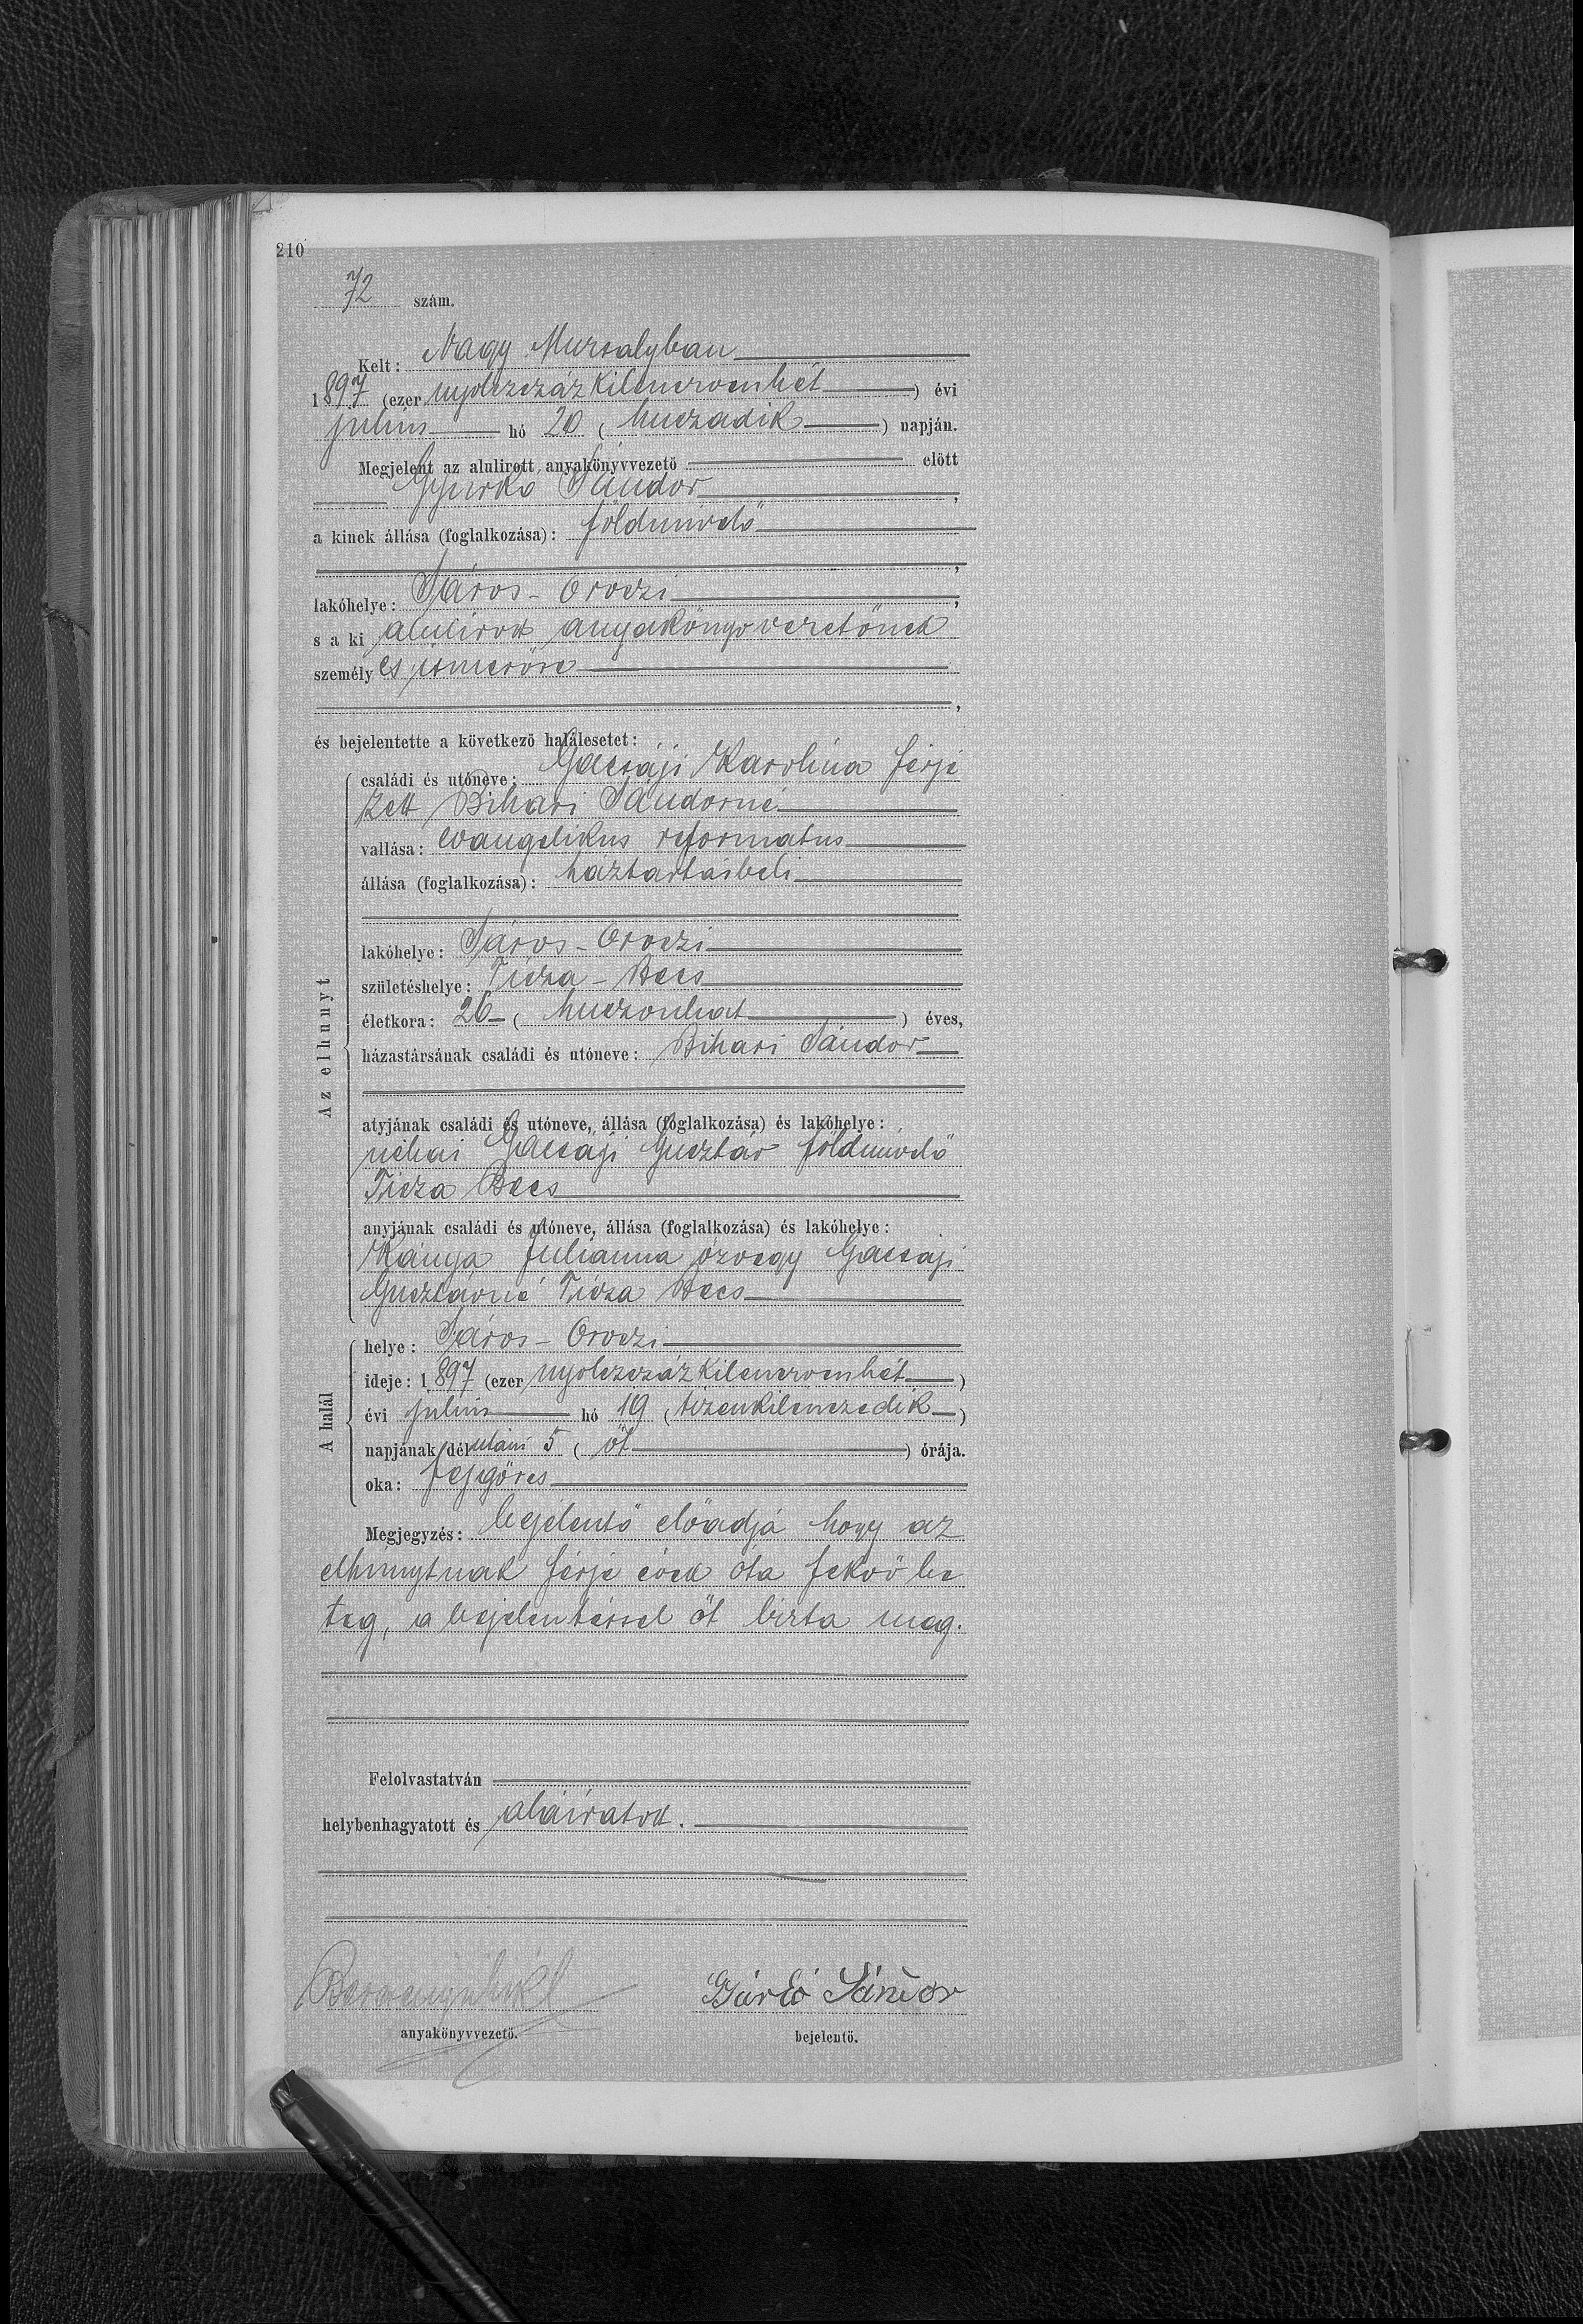 210
72 szám.
Kelt: Nagy Muzsalyban
1897 (ezer nyolczszáz kilenczvenhét) évi
julius hó 20 (huszadik) napján.
Megjelent az alulirott anyakönyvvezető előtt
Gyurkó Sándor,
a kinek állása (foglalkozása): földmivelő
,
lakóhelye: Sáros-Oroszi,
s a ki alulirott anyakönyvvezetőnek
személyes ismerőse
,
és bejelentette a következő halálesetet:
Az elhunyt
családi és utóneve: Gacsáji Karolina férje
zett Bihari Sándorné
vallása: evangelikus reformatus
állása (foglalkozása): háztartásbeli
lakóhelye: Sáros-Oroszi
születéshelye: Tisza-Becs
életkora: 26 (huszonhat) éves,
házastársának családi és utóneve: Bihari Sándor
atyjának családi és utóneve, állása (foglalkozása) és lakóhelye:
néhai Gacsáji Gusztáv földmivelő
Tisza Becs
anyjának családi és utóneve, állása (foglalkozása) és lakóhelye:
Kánya Julianna özvegy Gacsáji
Gusztávné Tisza Becs
A halál
helye: Sáros-Oroszi
ideje: 1897 (ezer nyolczszáz kilenczvenhét)
évi julius hó 19 (tizenkilenczedik)
napjának délutáni 5 (öt) órája.
oka: fejgörcs
Megjegyzés: bejelentő előadja hogy az
elhunytnak férje évek óta fekvő be
teg, a bejelentéssel őt bízta meg.
Felolvastatván
helybenhagyatott és aláíratott.
Gyúrkó Sándor
anyakönyvvezető.
bejelentő.